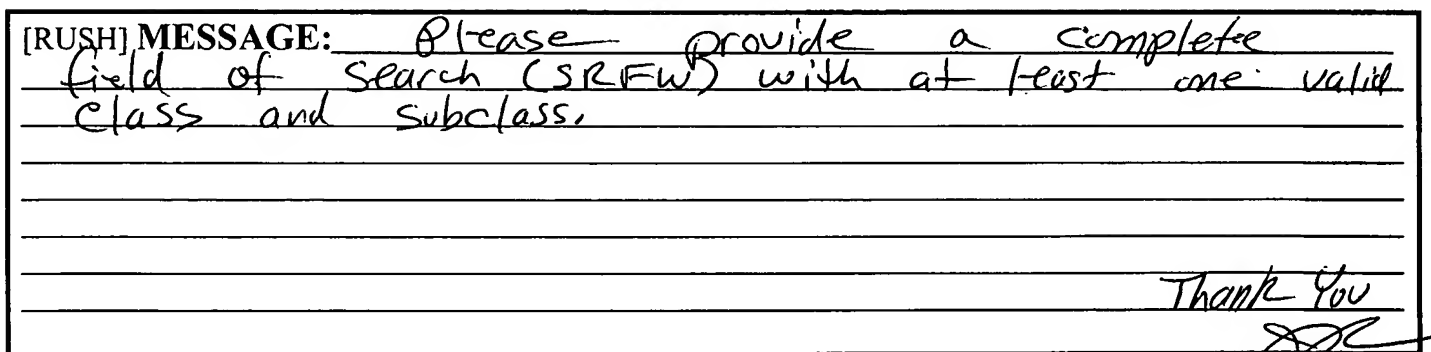 [RUSH] MESSAGE: Please provide a complete
field of Search (SRFW) with at least one valid
class and subclass.
Thank You